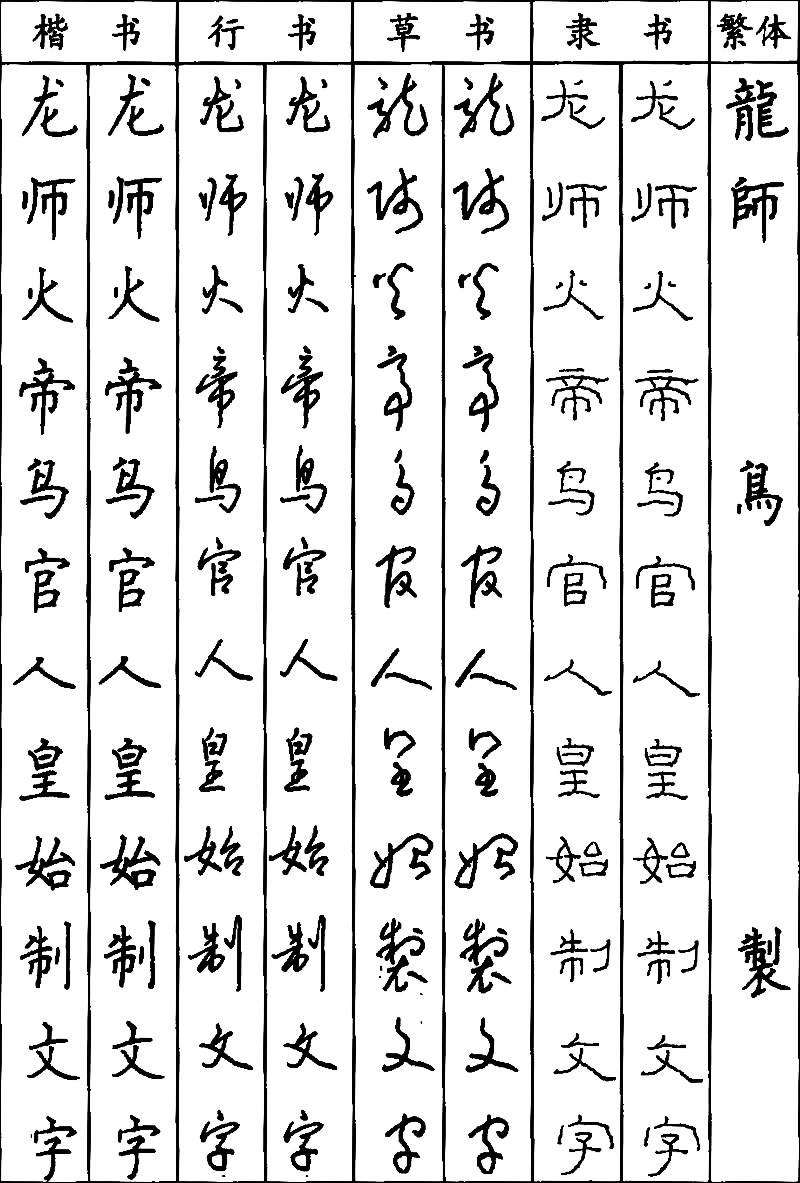 楷书 行书 草书 隶书 繁体
龙 龙 龙 龙 龙 龙 龙 龙 龍
师 师 师 师 师 师 师 师 師
火 火 火 火 火 火 火 火
帝 帝 帝 帝 帝 帝 帝 帝
鸟 鸟 鸟 鸟 鸟 鸟 鸟 鸟 鳥
官 官 官 官 官 官 官 官
人 人 人 人 人 人 人 人
皇 皇 皇 皇 皇 皇 皇 皇
始 始 始 始 始 始 始 始
制 制 制 制 製 製 制 制 製
文 文 文 文 文 文 文 文
字 字 字 字 字 字 字 字